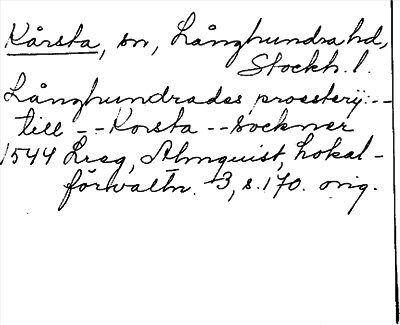 Kårsta, sn, Långhundra hd,
Stockh. l.
Långhundrades prosstery --
till -- Korsta -- sockner
1544 Lreg, Almquist, Lokal-
förvaltn. 3, s. 170. orig.